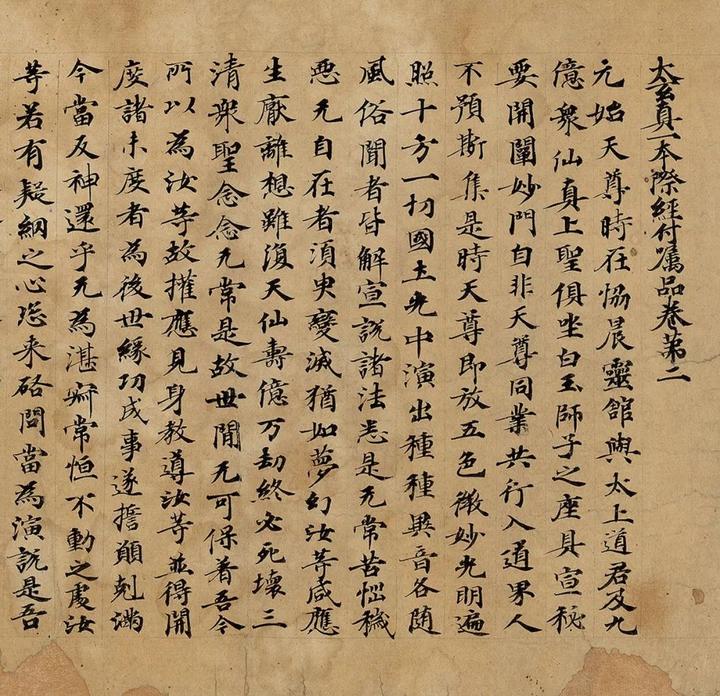 太玄真一本際經付嘱品卷第二
元始天尊時在協晨靈館與太上道君及九
億衆仙真上聖俱坐白玉師子之座具宣秘
要開闡妙門自非天尊同業共行入道界人
不預斯集是時天尊即放五色微妙光明遍
照十方一切國土光中演出種種異音各随
風俗聞者皆解宣說諸法悉是无常苦惱穢
惡无自在者湏臾變滅猶如夢幻汝等咸應
生厭離想雖復天仙壽億万劫終必死壞三
清衆聖念念无常是故世間无可保著吾今
所以為汝等故權應見身教導汝等並得開
度諸未度者為後世緣功成事遂擔願剋滿
今當反神還乎无為湛寂常恒不動之處汝
等若有疑網之心恣来啓問當為演說是吾